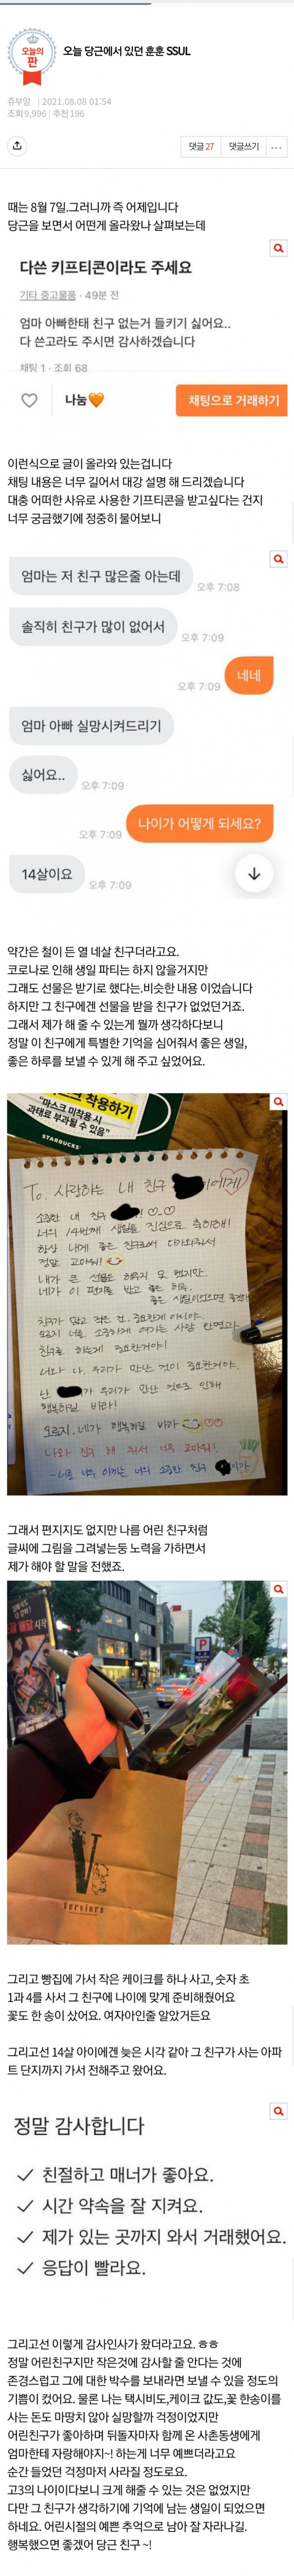 오늘의
판
오늘 당근에서 있던 훈훈 SSUL
쥬부앙 | 2021.08.08 01:54
조회 9,996 | 추천 196
댓글 27
댓글쓰기
때는 8월 7일.그러니까 즉 어제입니다
당근을 보면서 어떤게 올라왔나 살펴보는데
다쓴 키프티콘이라도 주세요
기타 중고물품 · 49분 전
엄마 아빠한태 친구 없는거 들키기 싫어요..
다 쓴고라도 주시면 감사하겠습니다
채팅 1 · 조회 68
나눔🧡
채팅으로 거래하기
이런식으로 글이 올라와 있는겁니다
채팅 내용은 너무 길어서 대강 설명 해 드리겠습니다
대충 어떠한 사유로 사용한 기프티콘을 받고싶다는 건지
너무 궁금했기에 정중히 물어보니
엄마는 저 친구 많은줄 아는데
오후 7:08
솔직히 친구가 많이 없어서
오후 7:09
네네
오후 7:09
엄마 아빠 실망시켜드리기
싫어요..
오후 7:09
나이가 어떻게 되세요?
오후 7:09
14살이요
오후 7:09
약간은 철이 든 열 네살 친구더라고요.
코로나로 인해 생일 파티는 하지 않을거지만
그래도 선물은 받기로 했다는.비슷한 내용 이었습니다
하지만 그 친구에겐 선물을 받을 친구가 없었던거죠.
그래서 제가 해 줄 수 있는게 뭘까 생각하다보니
정말 이 친구에게 특별한 기억을 심어줘서 좋은 생일,
좋은 하루를 보낼 수 있게 해 주고 싶었어요.
마스크 착용하기
"마스크 미착용 시
과태료 부과될 수 있음"
STARBUCKS
To. 사랑하는 내 친구 이에게!
소중한 내 친구
너의 14번째 생일을 진심으로 축하해!
항상 내게 좋은 친구로서 다가와줘서
정말 고마워!
내가 큰 선물은 해주지 못 했지만,
네가 이 편지를 받고 좋은 하루,
좋은 생일이었으면 좋겠어
친구가 많고 적은 건 중요한게 아니야.
너를 소중하게 여기는 사람 한명과
친구로 하는게 중요한거야!
너와 나, 우리가 만난 것이 중요한거야.
난 우리가 만난 것으로 인해
행복하길 바라!
오로지. 네가 행복하길 바라
나와 친구 해 줘서 너무 고마워!
-너를 너무 아끼는 너의 소중한 친구가
그래서 편지지도 없지만 나름 어린 친구처럼
글씨에 그림을 그려넣는둥 노력을 가하면서
제가 해야 할 말을 전했죠.
P
V
serviers
그리고 빵집에 가서 작은 케이크를 하나 사고, 숫자 초
1과 4를 사서 그 친구에 나이에 맞게 준비해줬어요
꽃도 한 송이 샀어요. 여자아인줄 알았거든요
그리고선 14살 아이에겐 늦은 시각 같아 그 친구가 사는 아파
트 단지까지 가서 전해주고 왔어요.
정말 감사합니다
✓ 친절하고 매너가 좋아요.
✓ 시간 약속을 잘 지켜요.
✓ 제가 있는 곳까지 와서 거래했어요.
✓ 응답이 빨라요.
그리고선 이렇게 감사인사가 왔더라고요. ㅎㅎ
정말 어린친구지만 작은것에 감사할 줄 안다는 것에
존경스럽고 그에 대한 박수를 보내라면 보낼 수 있을 정도의
기쁨이 컸어요. 물론 나는 택시비도,케이크 값도,꽃 한송이를
사는 돈도 마땅치 않아 실망할까 걱정이었지만
어린친구가 좋아하며 뒤돌자마자 함께 온 사촌동생에게
엄마한테 자랑해야지~! 하는게 너무 예쁘더라고요
순간 들었던 걱정마저 사라질 정도로요.
고3의 나이이다보니 크게 해줄 수 있는 것은 없었지만
다만 그 친구가 생각하기에 기억에 남는 생일이 되었으면
하네요. 어린시절의 예쁜 추억으로 남아 잘 자라나길.
행복했으면 좋겠어 당근 친구 ~!